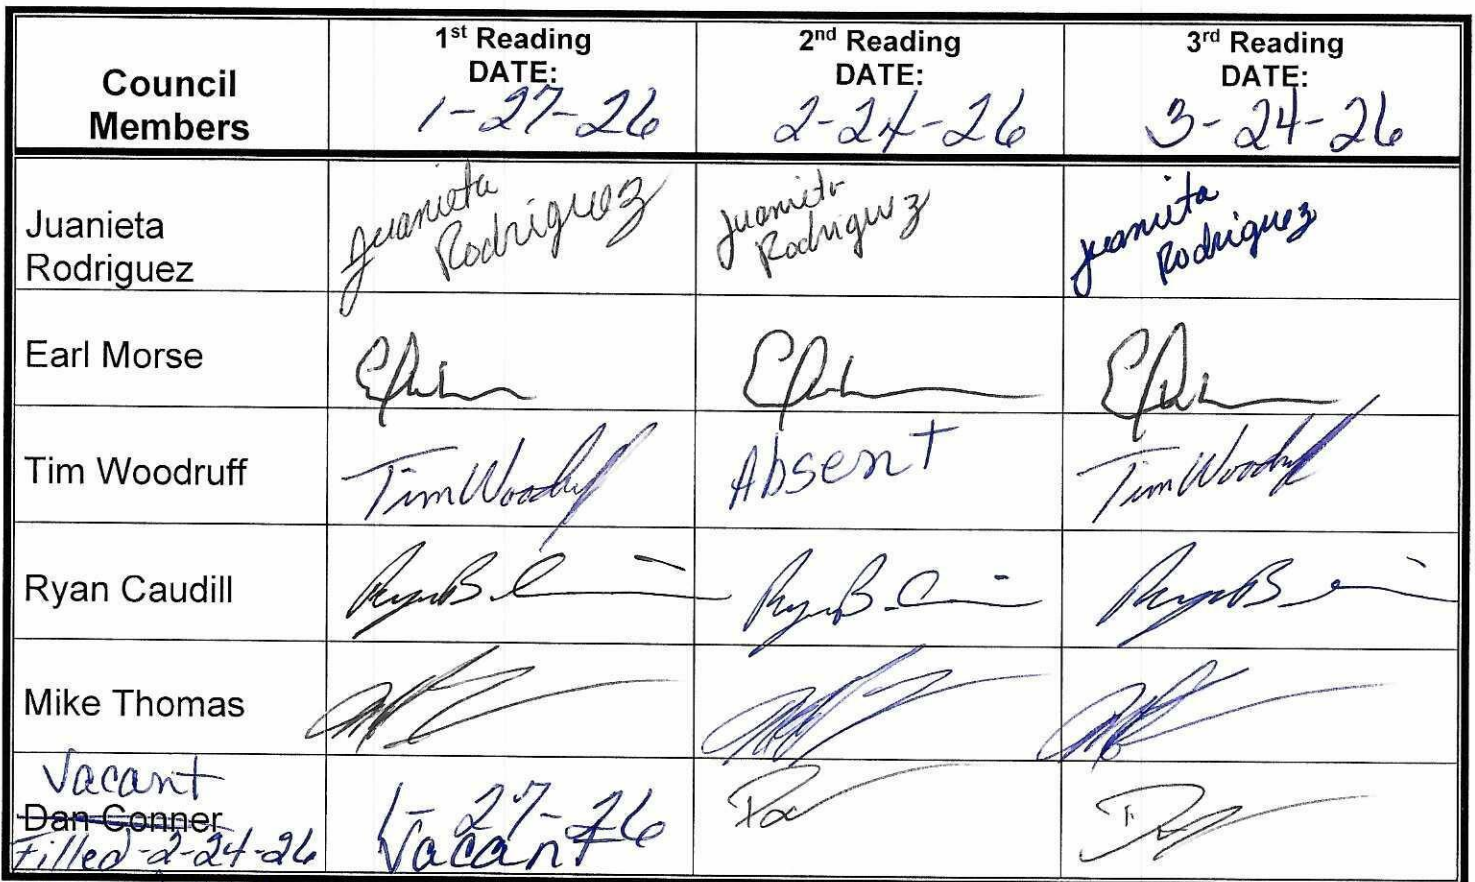 Council
Members
1st Reading
DATE:
1-27-26
2nd Reading
DATE:
2-24-26
3rd Reading
DATE:
3-24-26
Juanieta
Rodriguez
Juanieta
Rodriguez
Juanieta
Rodriguez
Juanieta
Rodriguez
Earl Morse
Tim Woodruff
Tim Woodruff
Absent
Tim Woodruff
Ryan Caudill
Mike Thomas
Vacant
Dan Conner
Filled-2-24-26
1-27-26
Vacant